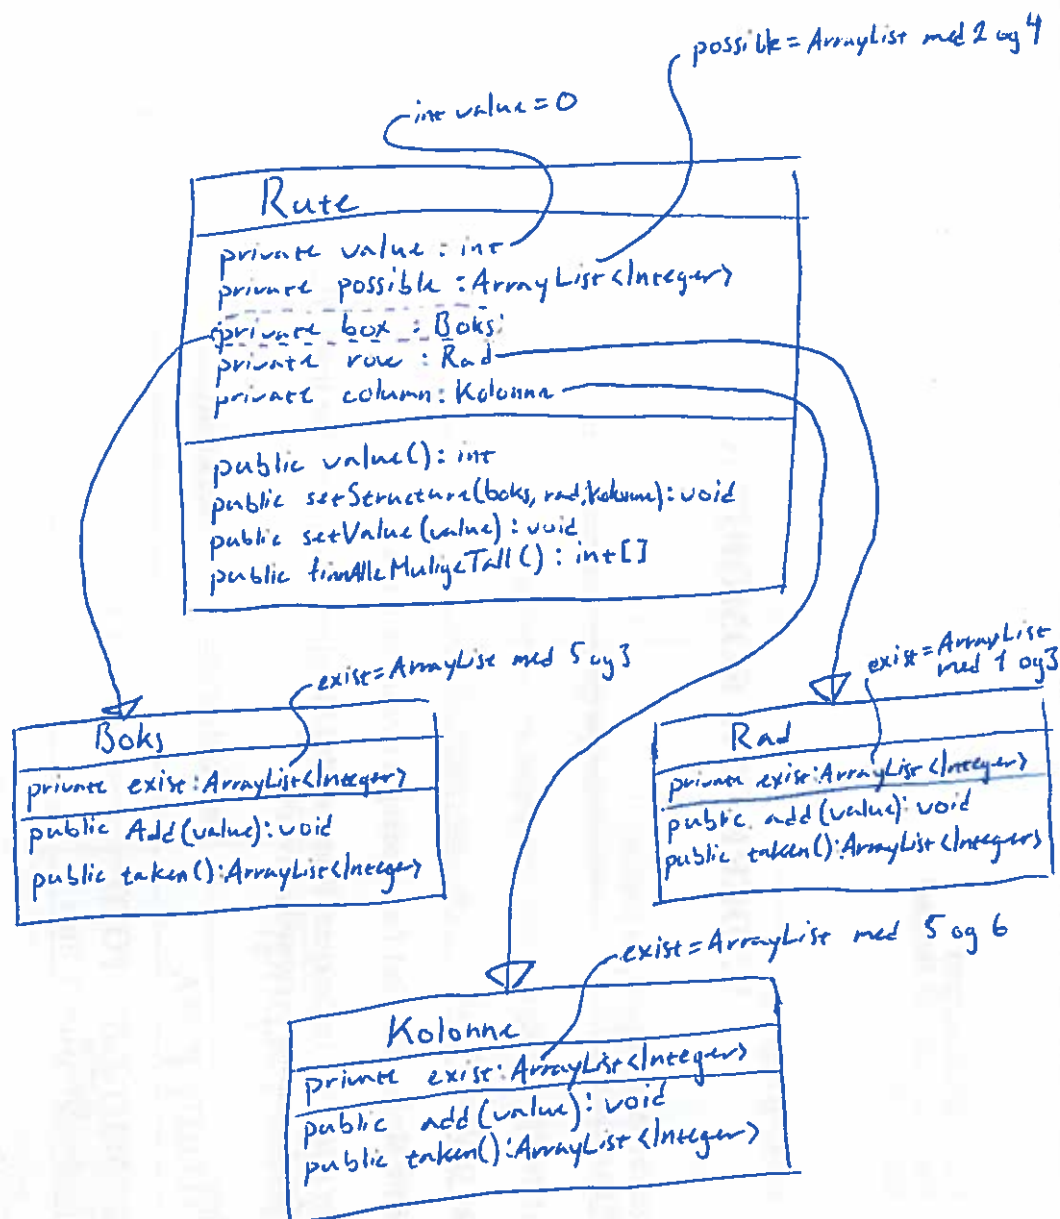 possible = ArrayList med 2 og 4
int value = 0
Rute
private value : int
private possible : ArrayList<Integer>
private box : Boks
private row : Rad
private column : Kolonne
public value() : int
public setStructure(boks, rad, kolonne) : void
public setValue(value) : void
public finnAlleMuligeTall() : int[]
exist = ArrayList med 5 og 3
Boks
private exist : ArrayList<Integer>
public Add(value) : void
public taken() : ArrayList<Integer>
exist = ArrayList
med 1 og 3
Rad
private exist : ArrayList<Integer>
public add(value) : void
public taken() : ArrayList<Integer>
exist = ArrayList med 5 og 6
Kolonne
private exist : ArrayList<Integer>
public add(value) : void
public taken() : ArrayList<Integer>